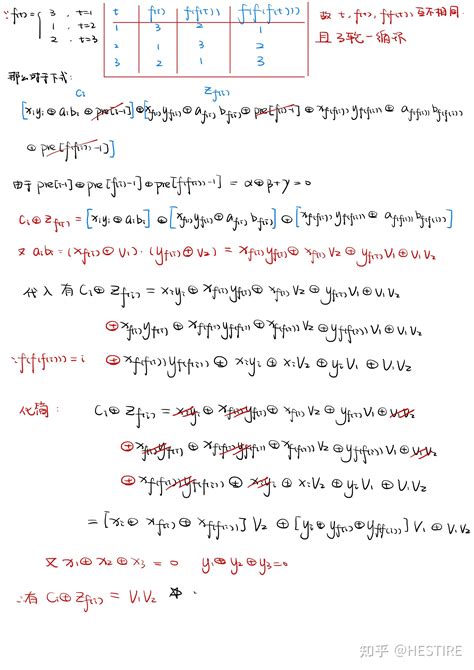 ∵ f(t) = { 3, t=1
1, t=2
2, t=3
t f(t) f(f(t)) f(f(f(t)))
1 3 2 1
2 1 3 2
3 2 1 3
故 t, f(t), f(f(t)) 互不相同,
且3轮一循环
那么对于下式:
Ci Zf(i)
[xiyi ⊕ aibi ⊕ pre[i-1]] ⊕ [xf(i)yf(i) ⊕ af(i)bf(i) ⊕ pre[f(i)-1]] ⊕ xf(f(i))yf(f(i)) ⊕ af(f(i))bf(f(i))
⊕ pre[f(f(i))-1]
由于 pre[i-1] ⊕ pre[f(i)-1] ⊕ pre[f(f(i))-1] = α ⊕ β + γ = 0
Ci ⊕ Zf(i) = [xiyi ⊕ aibi] ⊕ [xf(i)yf(i) ⊕ af(i)bf(i)] ⊕ [xf(f(i))yf(f(i)) ⊕ af(f(i))bf(f(i))]
又 aibi = (xf(i) ⊕ V1)·(yf(i) ⊕ V2) = xf(i)yf(i) ⊕ xf(i)V2 ⊕ yf(i)V1 ⊕ V1V2
代入 有 Ci ⊕ Zf(i) = xiyi ⊕ xf(i)yf(i) ⊕ xf(i)V2 ⊕ yf(i)V1 ⊕ V1V2
⊕ xf(i)yf(i) ⊕ xf(f(i))yf(f(i)) ⊕ xf(f(i))V2 ⊕ yf(f(i))V1 ⊕ V1V2
∵ f(f(f(i))) = i ⊕ xf(f(i))yf(f(i)) ⊕ xiyi ⊕ xiV2 ⊕ yiV1 ⊕ V1V2
化简: Ci ⊕ Zf(i) = xiyi ⊕ xf(i)yf(i) ⊕ xf(i)V2 ⊕ yf(i)V1 ⊕ V1V2
⊕ xf(i)yf(i) ⊕ xf(f(i))yf(f(i)) ⊕ xf(f(i))V2 ⊕ yf(f(i))V1 ⊕ V1V2
⊕ xf(f(i))yf(f(i)) ⊕ xiyi ⊕ xiV2 ⊕ yiV1 ⊕ V1V2
= [xi ⊕ xf(i) ⊕ xf(f(i))]V2 ⊕ [yi ⊕ yf(i) ⊕ yf(f(i))]V1 ⊕ V1V2
又 x1 ⊕ x2 ⊕ x3 = 0 y1 ⊕ y2 ⊕ y3 = 0
∴有 Ci ⊕ Zf(i) = V1V2 ☆
知乎 @HESTIRE